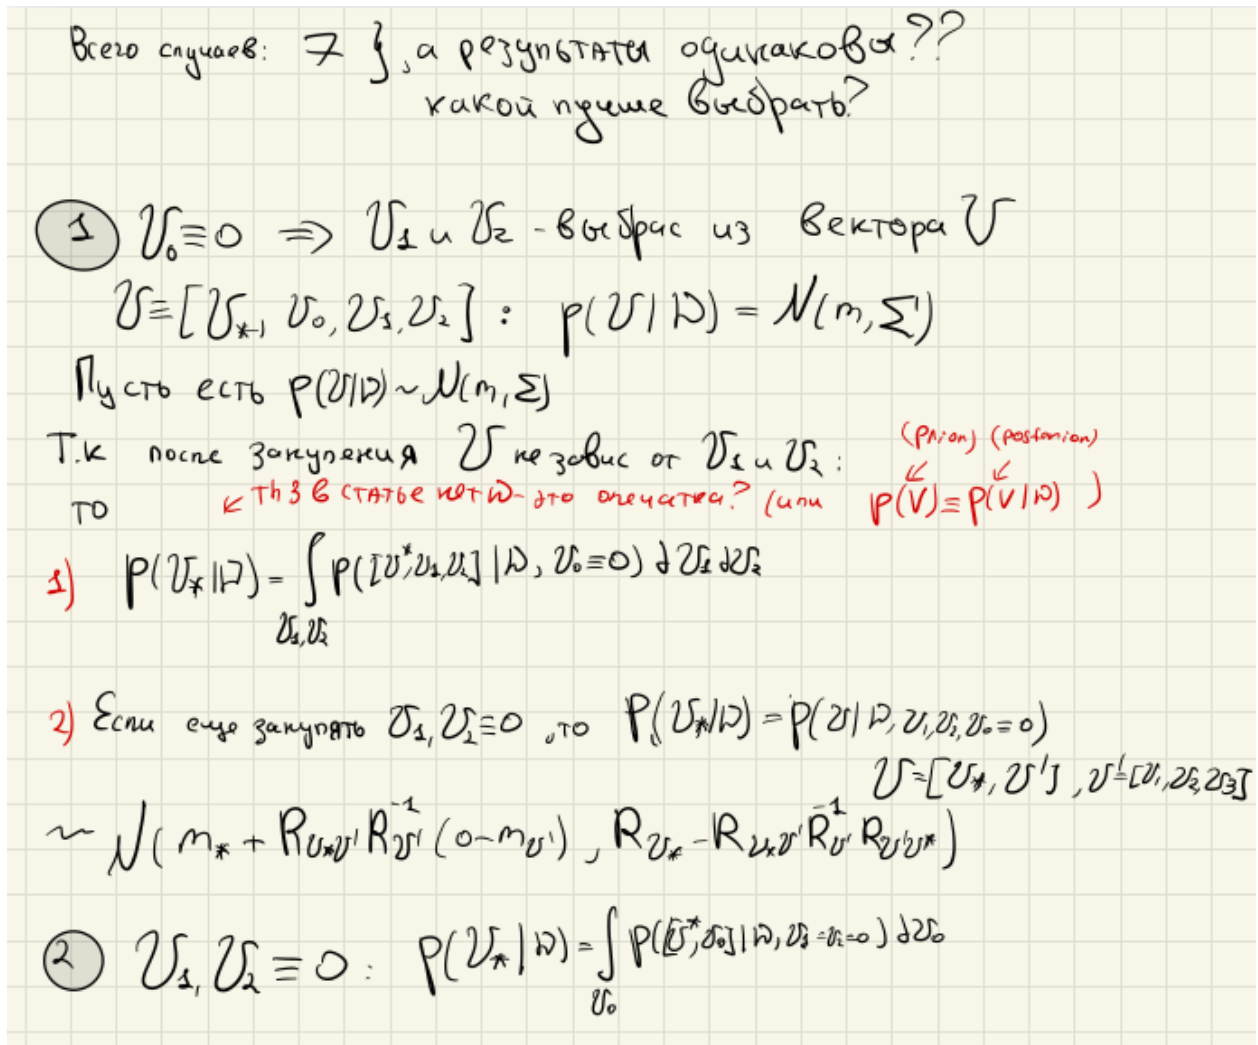 Всего случаев: 7 }, а результаты одинаковы??
какой лучше выбрать?
1 V₀≡0 ⇒ V₁ и V₂ - выбрас из вектора V
V≡[V_*, V₀, V₁, V₂] : p(V|D) = N(m, Σ)
Пусть есть p(V|D) ~ N(m, Σ)
Т.к после зануления V не завис от V₁ и V₂ :
(prior) (posterior)
то ↙ Th 3 в статье нет D - это опечатка? (или p(V) ≡ p(V|D) )
1) p(V_*|D) = ∫_{V₁,V₂} p([V^*, V₁, V₂] | D, V₀≡0) dV₁ dV₂
2) Если еще занулять V₁, V₂≡0, то P(V_*|D) = p(V|D, V₁, V₂, V₀=0)
V=[V_*, V'], V'=[V₁, V₂, V₃]
~ N(m_* + R_{V_*V'} R_{V'}^{-1} (0-m_{V'}), R_{V_*} - R_{V_*V'} R_{V'}^{-1} R_{V'V^*})
2 V₁, V₂ ≡ 0 : p(V_*|D) = ∫_{V₀} p([V^*, V₀] | D, V₁=V₂=0) dV₀